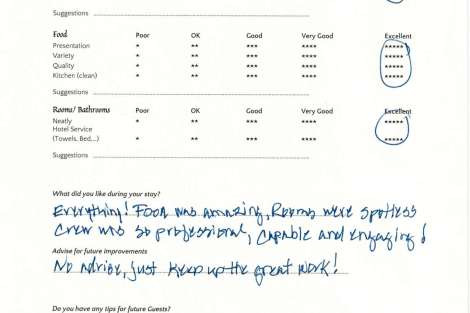 Suggestions
Food Poor OK Good Very Good Excellent
Presentation * ** *** **** *****
Variety * ** *** **** *****
Quality * ** *** **** *****
Kitchen (clean) * ** *** **** *****
Suggestions
Rooms/ Bathrooms Poor OK Good Very Good Excellent
Neatly * ** *** **** *****
Hotel Service
(Towels, Bed...) * ** *** **** *****
Suggestions
What did you like during your stay?
Everything! Food was amazing, Rooms were spotless
Crew was so professional, capable and engaging!
Advise for future improvements
No advise, just keep up the great work!
Do you have any tips for future Guests?